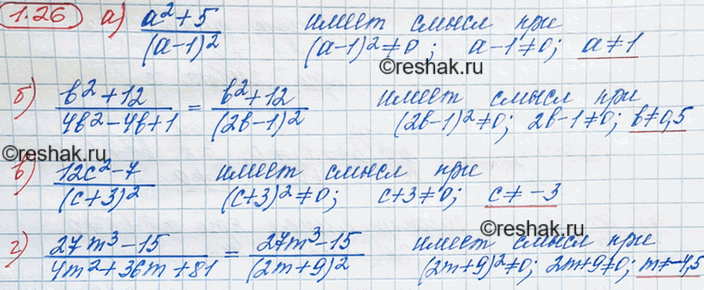 1.26 а) (a²+5)/(a-1)² имеет смысл при
(a-1)²≠0; a-1≠0; a≠1
©reshak.ru
б) (b²+12)/(4b²-4b+1) = (b²+12)/(2b-1)² имеет смысл при
(2b-1)²≠0; 2b-1≠0; b≠0,5
в) (12c²-7)/(c+3)² имеет смысл при
(c+3)²≠0; c+3≠0; c≠-3
©reshak.ru
г) (27m³-15)/(4m²+36m+81) = (27m³-15)/(2m+9)² имеет смысл при
(2m+9)²≠0; 2m+9≠0; m≠-4,5